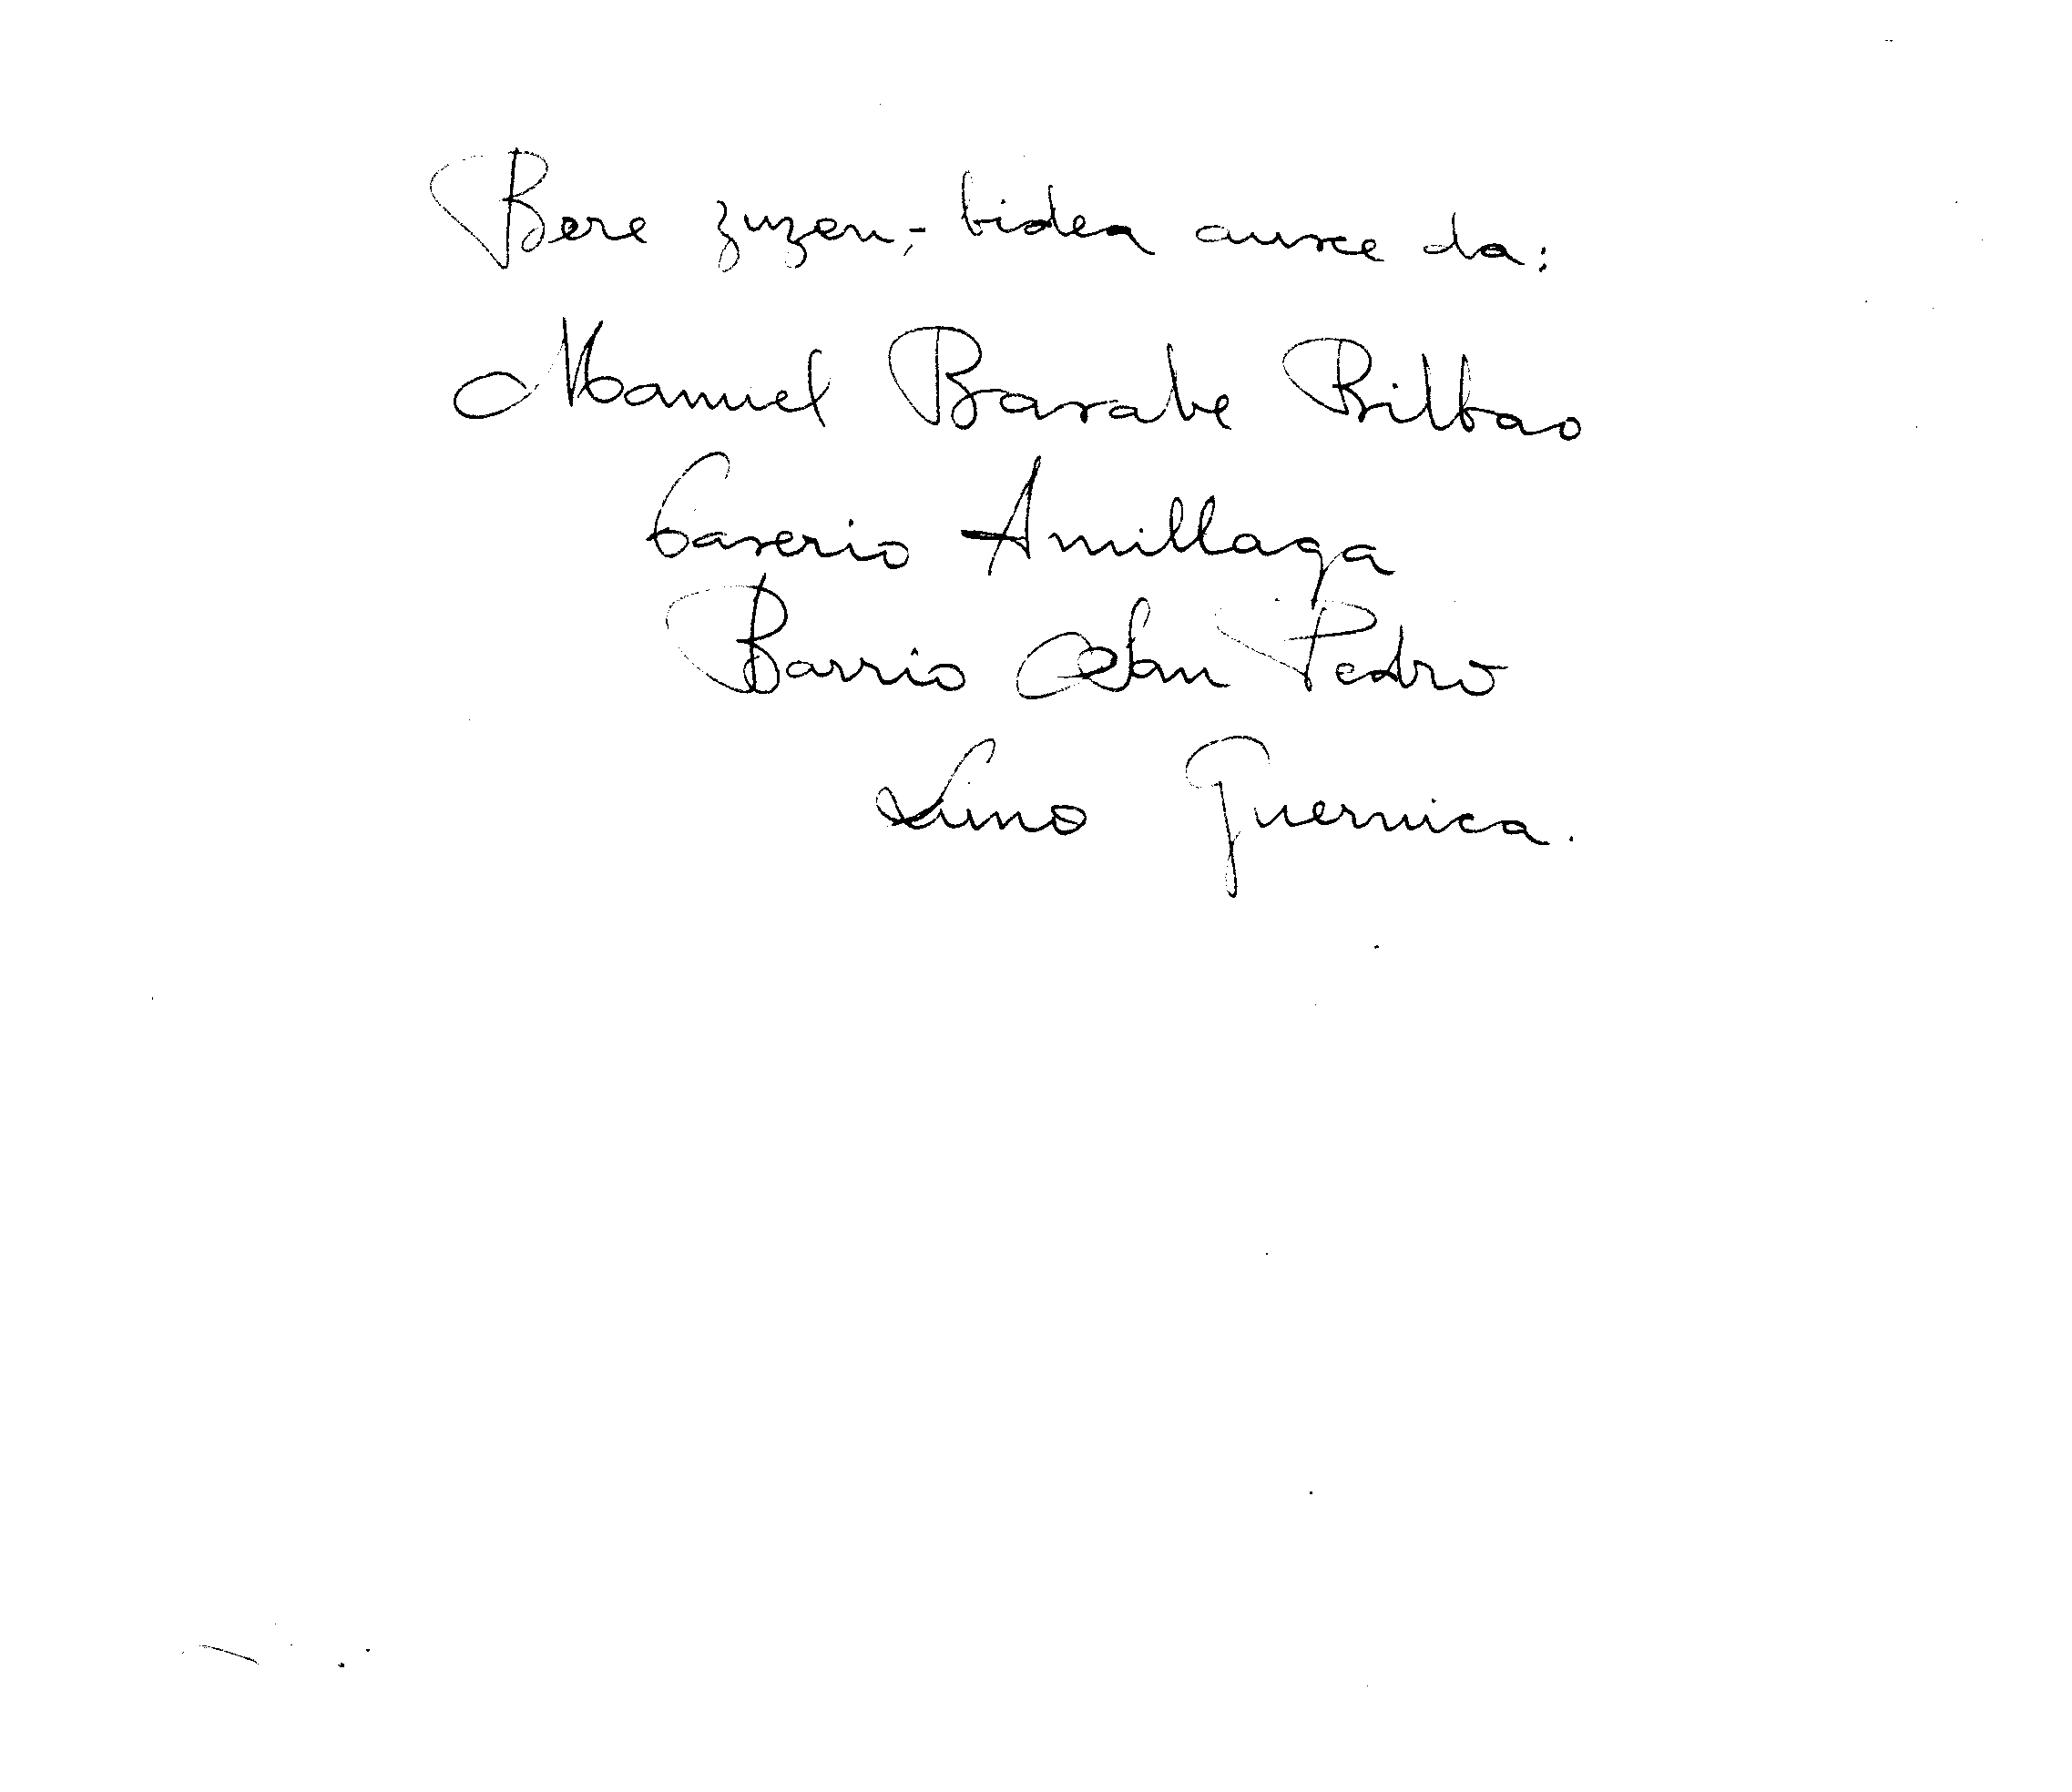 Bere zuzen,- bidea auxe da:
Manuel Basabe Bilbao
Caserio Amillaga
Barrio San Pedro
Luno Guernica.